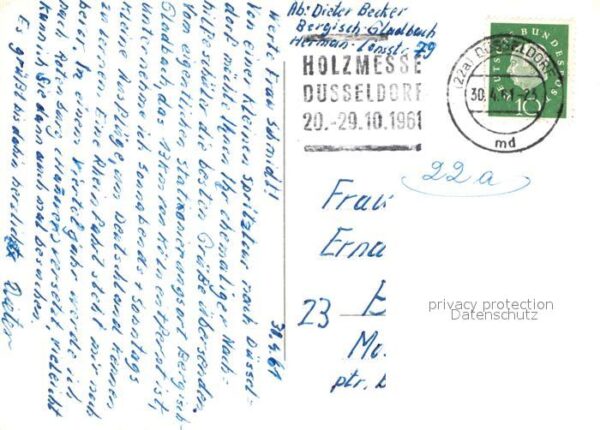 Ab: Dieter Becker
Bergisch-Gladbach
Herman-Lönsstr. 79
HOLZMESSE
DÜSSELDORF
20.-29.10.1961
(22a) DÜSSELDORF
30.4.61-23
md
DEUTSCHE BUNDESPOST
10
22a
Frau
Erna
23
Mo.
ptr.
privacy protection
Datenschutz
30.4.61
Wert. Frau Schmidt!
Von einer kleinen Spritztour nach Düssel-
dorf möchte Ihnen Ihr ehemaliger Nach-
hilfeschüler die besten Grüße übersenden.
Vom eigentlichen Stationierungsort Bergisch-
Gladbach das 17 km von Köln entfernt ist,
unternehme ich Sonnabends + Sonntags
kleine Ausflüge um Deutschland kennen
zu lernen. Eine Rhein Fahrt steht mir noch
bevor. In einem Vierteljahr werde ich
nach Ratzeburg versetzt, vielleicht
kann ich Sie dann auch mal besuchen.
Es grüßt bis dahin herzlichst Dieter